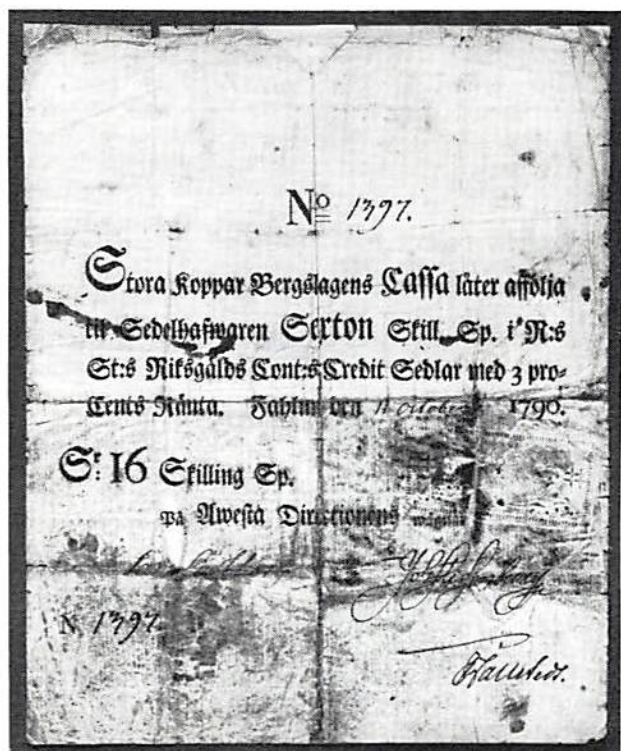 No 1397.
Stora Koppar Bergslagens Cassa låter afföljа
til Sedelhafwaren Sexton Skill. Sp. i R:s
St:s Riksgälds Cont:s Credit Sedlar med 3 pro-
Cents Ränta. Fahlun den 11 October 1790.
Sr: 16 Skilling Sp.
På Awesta Directionens wägnar
N 1397.